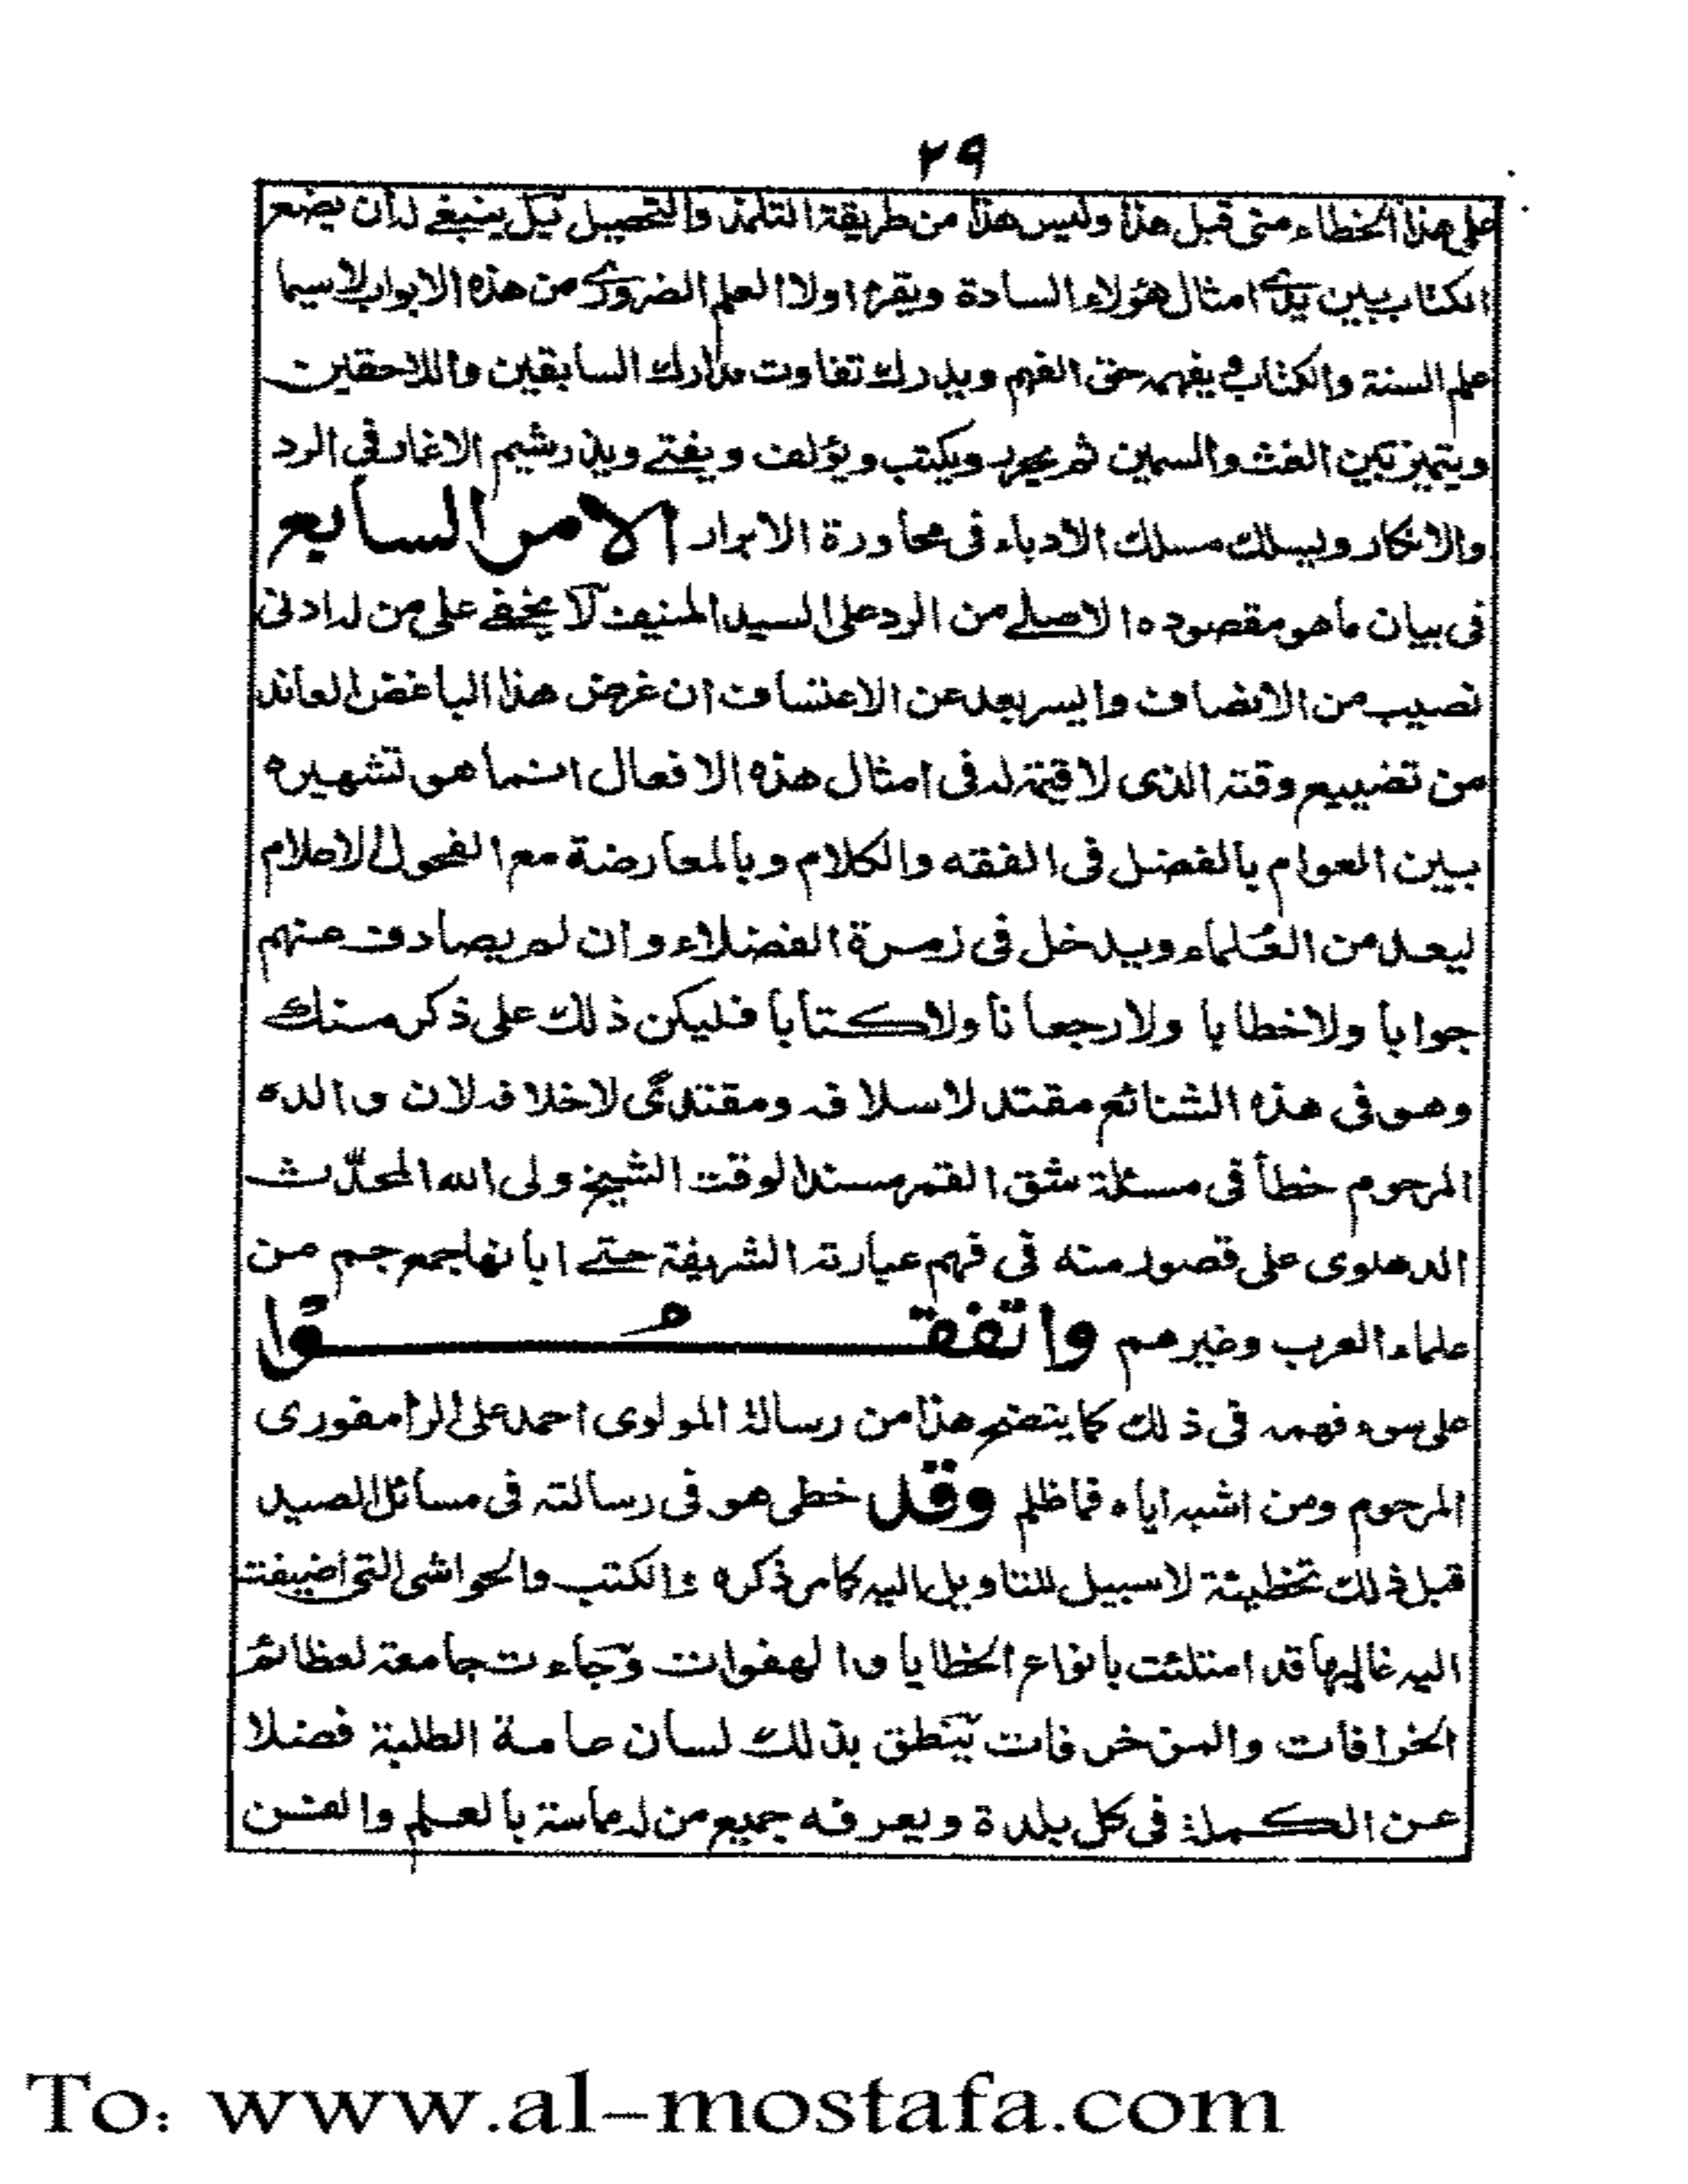 ٢٩
على هذا الخطاء متى قبل هذا وليس هذا من طريقة التلمذ والتحصيل بل ينبغي له ان يضع
الكتاب بين يدي امثال هؤلاء السادة ويقرء اولا العلم الضروري من هذه الابواب لاسيما
علم السنة والكتاب و يفهمه حق الفهم ويدرك تفاوت مدارك السابقين واللاحقين
ويتميز بين الغث والسمين ثم يحرر ويكتب ويؤلف ويفتي ويذر شيم الاغمار في الرد
والانكار ويسلك مسلك الادباء في محاورة الابرار الامر السابع
في بيان ما هو مقصوده الاصلي من الرد على السيد المنيف لا يخفى على من له ادنى
نصيب من الانصاف وايسر بعد عن الاعتساف ان غرض هذا الباغض العاند
من تضييع وقته الذي لا قيمة له في امثال هذه الافعال انما هو تشهيره
بين العوام بالفضل في الفقه والكلام وبالمعارضة مع الفحول الاعلام
ليعد من العلماء ويدخل في زمرة الفضلاء وان لم يصادف منهم
جوابا ولا خطابا ولا رجعانا ولا كتابا فليكن ذلك على ذكر منك
وهو في هذه الشنائع مقتد لاسلافه ومقتدى لاخلافه لان والده
المرحوم خطأ في مسئلة شق القمر مسند الوقت الشيخ ولى الله المحدّث
الدهلوى على قصور منه في فهم عبارته الشريفة حتى ابانها جمع جم من
علماء العرب وغيرهم واتفقوا
على سوء فهمه في ذلك كما يتضح هذا من رسالة المولوى احمد على الرامفورى
المرحوم ومن اشبه اباه فما ظلم وقد خطى هو في رسالته في مسائل الصيد
قبل ذلك تخطيئة لا سبيل للتاويل اليه كما مر ذكره والكتب والحواشى التى اضيفت
اليه غالبها قد امتلئت بانواع الخطايا والهفوات وجاءت جامعة لعظائم
الخرافات والمزخرفات ينطق بذلك لسان عامة الطلبة فضلا
عن الكملة في كل بلدة ويعرفه جميع من له ماسة بالعلم والفن
To: www.al-mostafa.com